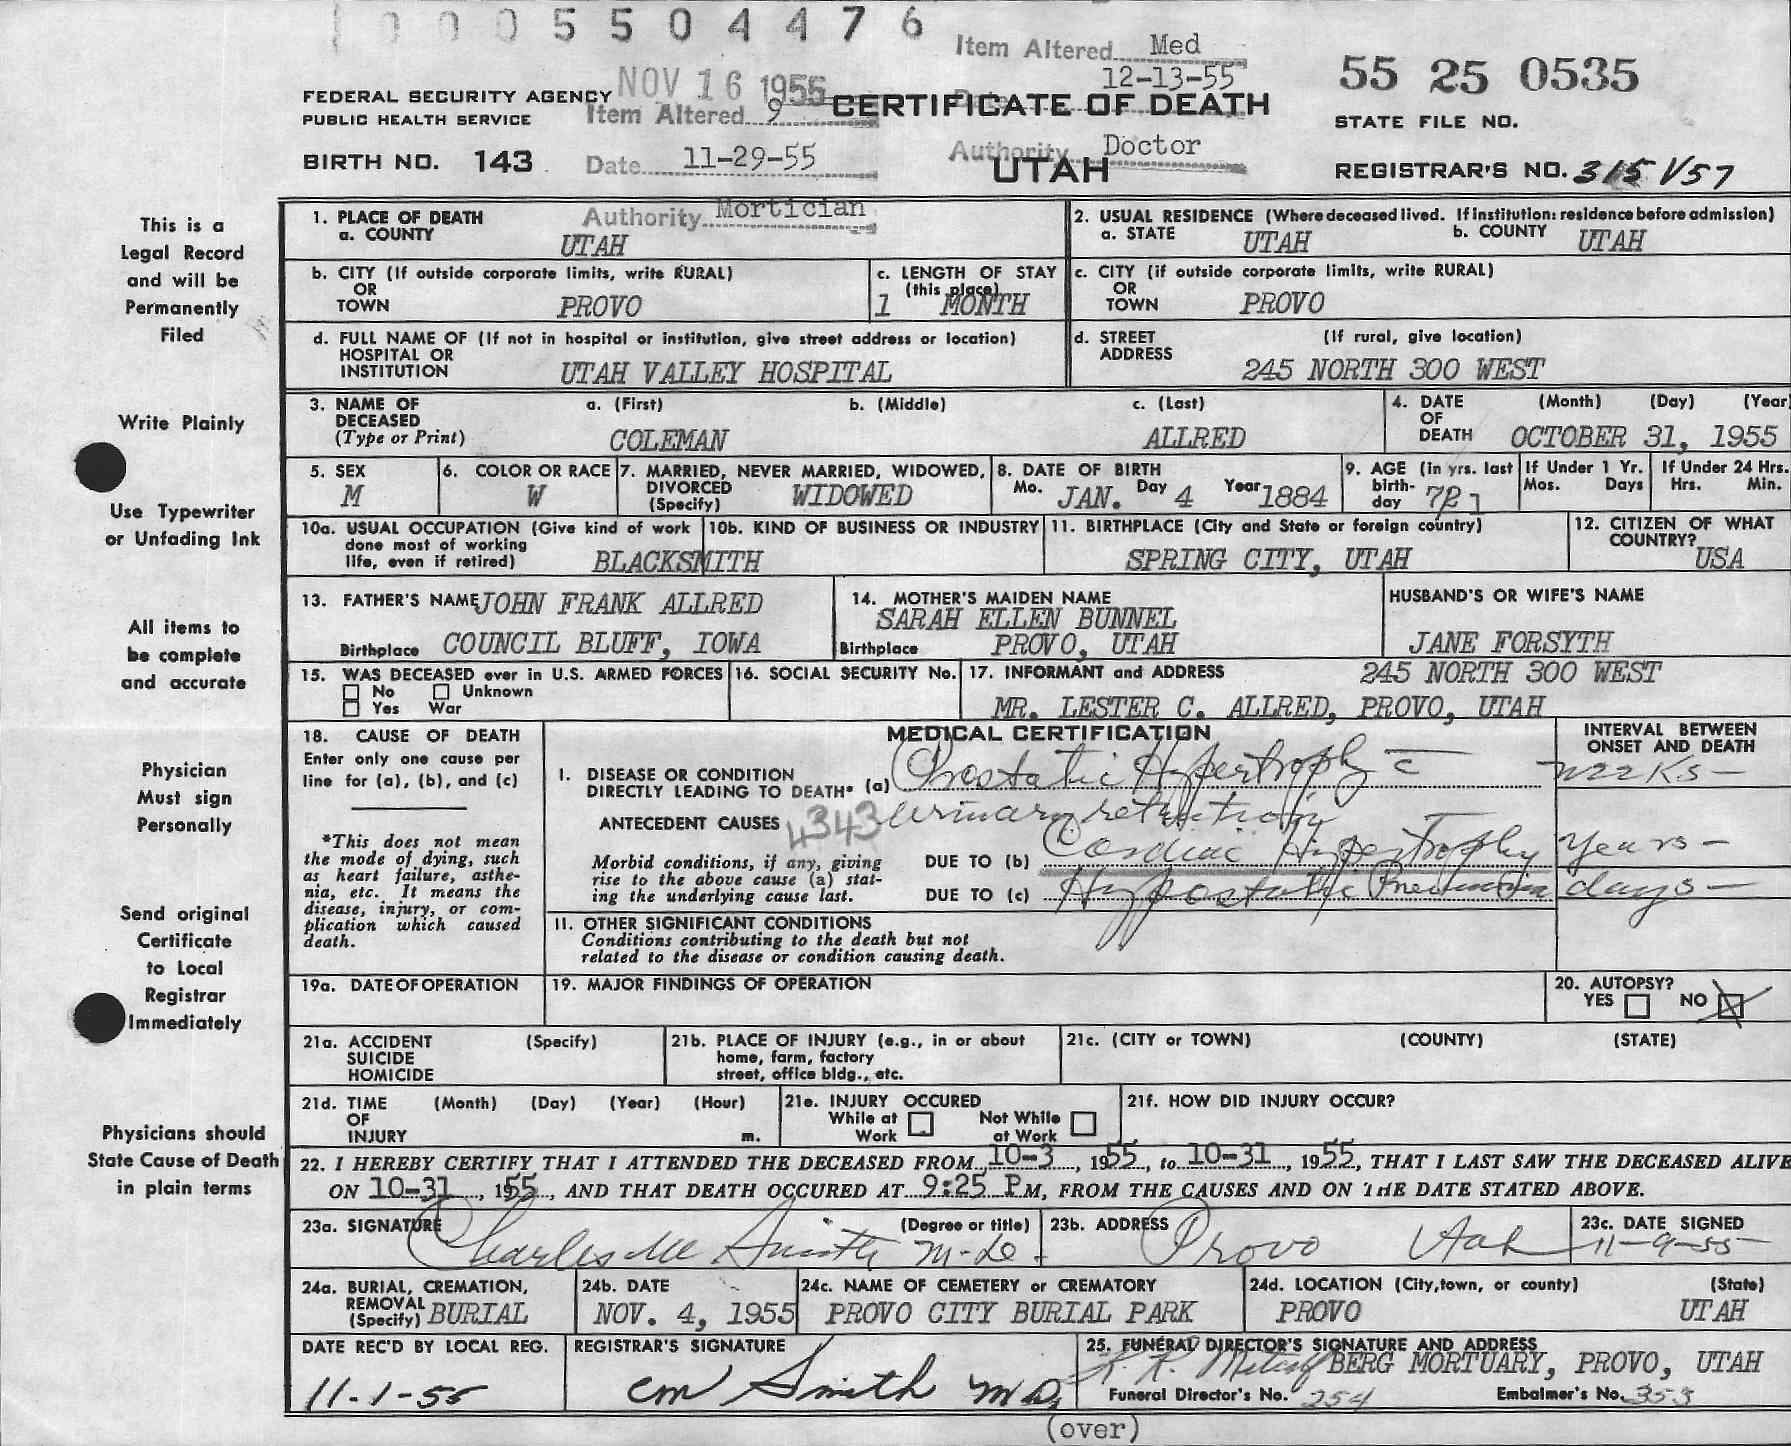 0005504476
Item Altered Med
NOV 16 1955
12-13-55
55 25 0535
FEDERAL SECURITY AGENCY
PUBLIC HEALTH SERVICE
Item Altered 9
Date
CERTIFICATE OF DEATH
STATE FILE NO.
BIRTH NO. 143
Date 11-29-55
Authority Doctor
UTAH
REGISTRAR'S NO. 315 V57
This is a
Legal Record
and will be
Permanently
Filed
Write Plainly
Use Typewriter
or Unfading Ink
All items to
be complete
and accurate
Physician
Must sign
Personally
Send original
Certificate
to Local
Registrar
Immediately
Physicians should
State Cause of Death
in plain terms
1. PLACE OF DEATH
a. COUNTY
Authority Mortician
UTAH
2. USUAL RESIDENCE (Where deceased lived. If institution: residence before admission)
a. STATE UTAH b. COUNTY UTAH
b. CITY (If outside corporate limits, write RURAL)
OR
TOWN PROVO
c. LENGTH OF STAY
(this place)
1 MONTH
c. CITY (if outside corporate limits, write RURAL)
OR
TOWN PROVO
d. FULL NAME OF (If not in hospital or institution, give street address or location)
HOSPITAL OR
INSTITUTION UTAH VALLEY HOSPITAL
d. STREET (If rural, give location)
ADDRESS
245 NORTH 300 WEST
3. NAME OF a. (First) b. (Middle) c. (Last)
DECEASED
(Type or Print) COLEMAN ALLRED
4. DATE (Month) (Day) (Year
OF
DEATH OCTOBER 31, 1955
5. SEX
M
6. COLOR OR RACE
W
7. MARRIED, NEVER MARRIED, WIDOWED,
DIVORCED
(Specify) WIDOWED
8. DATE OF BIRTH
Mo. JAN. Day 4 Year 1884
9. AGE (in yrs. last
birth-
day 72 1
If Under 1 Yr.
Mos. Days
If Under 24 Hrs.
Hrs. Min.
10a. USUAL OCCUPATION (Give kind of work
done most of working
life, even if retired) BLACKSMITH
10b. KIND OF BUSINESS OR INDUSTRY
11. BIRTHPLACE (City and State or foreign country)
SPRING CITY, UTAH
12. CITIZEN OF WHAT
COUNTRY?
USA
13. FATHER'S NAME JOHN FRANK ALLRED
Birthplace COUNCIL BLUFF, IOWA
14. MOTHER'S MAIDEN NAME
SARAH ELLEN BUNNEL
Birthplace PROVO, UTAH
HUSBAND'S OR WIFE'S NAME
JANE FORSYTH
15. WAS DECEASED ever in U.S. ARMED FORCES
No Unknown
Yes War
16. SOCIAL SECURITY No.
17. INFORMANT and ADDRESS 245 NORTH 300 WEST
MR. LESTER C. ALLRED, PROVO, UTAH
18. CAUSE OF DEATH
Enter only one cause per
line for (a), (b), and (c)
*This does not mean
the mode of dying, such
as heart failure, asthe-
nia, etc. It means the
disease, injury, or com-
plication which caused
death.
MEDICAL CERTIFICATION
INTERVAL BETWEEN
ONSET AND DEATH
I. DISEASE OR CONDITION
DIRECTLY LEADING TO DEATH* (a) Prostatic Hypertrophy c weeks-
ANTECEDENT CAUSES 4343 urinary retention
Morbid conditions, if any, giving
rise to the above cause (a) stat-
ing the underlying cause last.
DUE TO (b) Cardiac Hypertrophy years-
DUE TO (c) Hypostatic Pneumonia days-
11. OTHER SIGNIFICANT CONDITIONS
Conditions contributing to the death but not
related to the disease or condition causing death.
19a. DATE OF OPERATION
19. MAJOR FINDINGS OF OPERATION
20. AUTOPSY?
YES NO X
21a. ACCIDENT (Specify)
SUICIDE
HOMICIDE
21b. PLACE OF INJURY (e.g., in or about
home, farm, factory
street, office bldg., etc.
21c. (CITY or TOWN) (COUNTY) (STATE)
21d. TIME (Month) (Day) (Year) (Hour)
OF
INJURY m.
21e. INJURY OCCURED
While at Work Not While at Work
21f. HOW DID INJURY OCCUR?
22. I HEREBY CERTIFY THAT I ATTENDED THE DECEASED FROM 10-3, 1955, to 10-31, 1955, THAT I LAST SAW THE DECEASED ALIVE
ON 10-31, 1955, AND THAT DEATH OCCURED AT 9:25 PM, FROM THE CAUSES AND ON THE DATE STATED ABOVE.
23a. SIGNATURE (Degree or title)
Charles Mc Smith M-D.
23b. ADDRESS
Provo Utah
23c. DATE SIGNED
11-9-55
24a. BURIAL, CREMATION,
REMOVAL
(Specify) BURIAL
24b. DATE
NOV. 4, 1955
24c. NAME OF CEMETERY or CREMATORY
PROVO CITY BURIAL PARK
24d. LOCATION (City, town, or county) (State)
PROVO UTAH
DATE REC'D BY LOCAL REG.
11-1-55
REGISTRAR'S SIGNATURE
CM Smith MD.
25. FUNERAL DIRECTOR'S SIGNATURE AND ADDRESS
K. R. Metcalf BERG MORTUARY, PROVO, UTAH
Funeral Director's No. 254 Embalmer's No. 353
(over)